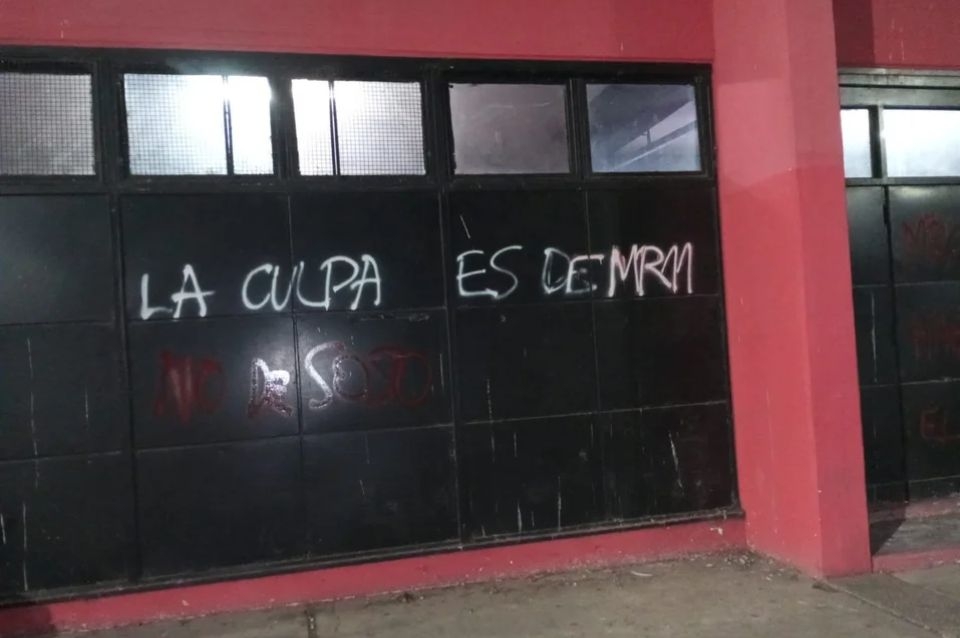 LA CULPA ES DE MRM
NO DE SOSO
EL